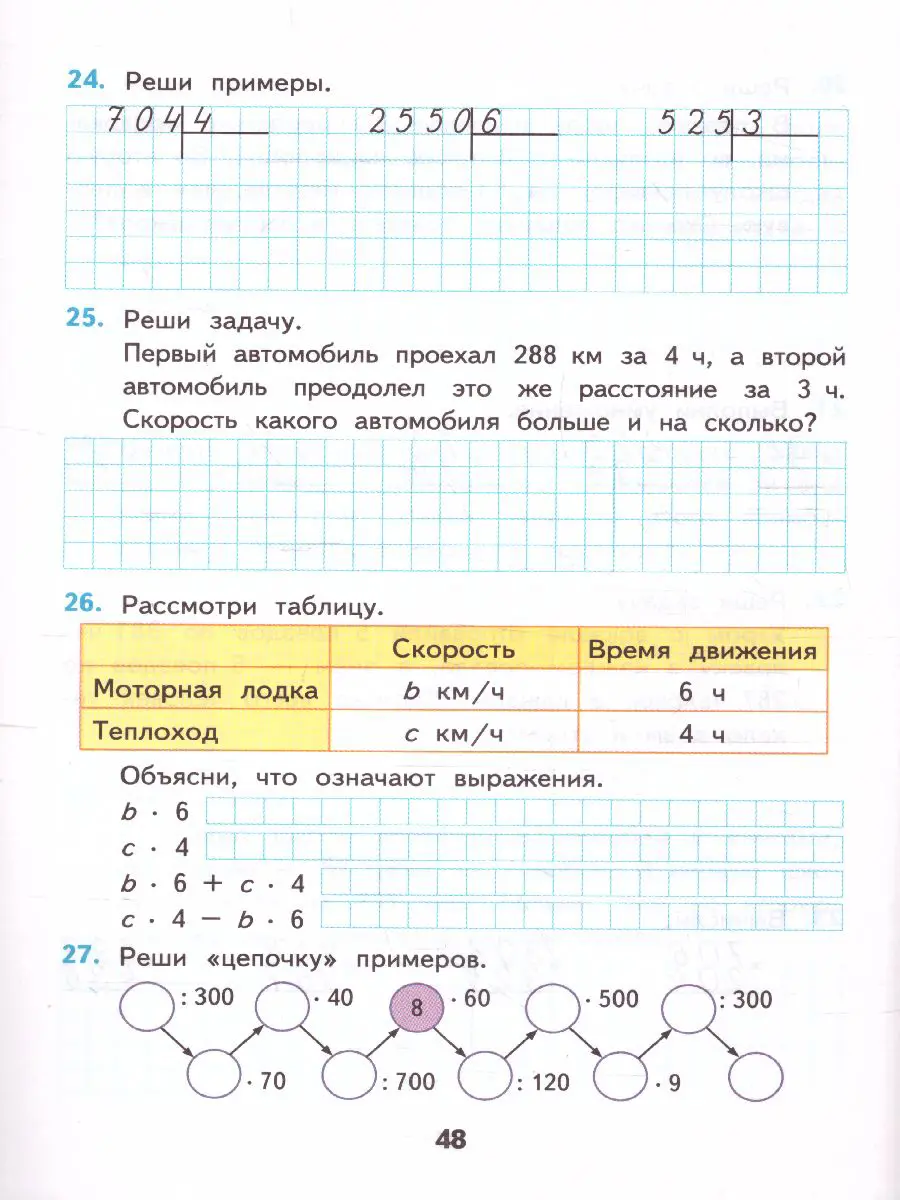 24. Реши примеры.
704 4 2550 6 525 3
25. Реши задачу.
Первый автомобиль проехал 288 км за 4 ч, а второй
автомобиль преодолел это же расстояние за 3 ч.
Скорость какого автомобиля больше и на сколько?
26. Рассмотри таблицу.
Скорость Время движения
Моторная лодка b км/ч 6 ч
Теплоход c км/ч 4 ч
Объясни, что означают выражения.
b · 6
c · 4
b · 6 + c · 4
c · 4 — b · 6
27. Реши «цепочку» примеров.
: 300 · 40 8 · 60 · 500 : 300
· 70 : 700 : 120 · 9
48